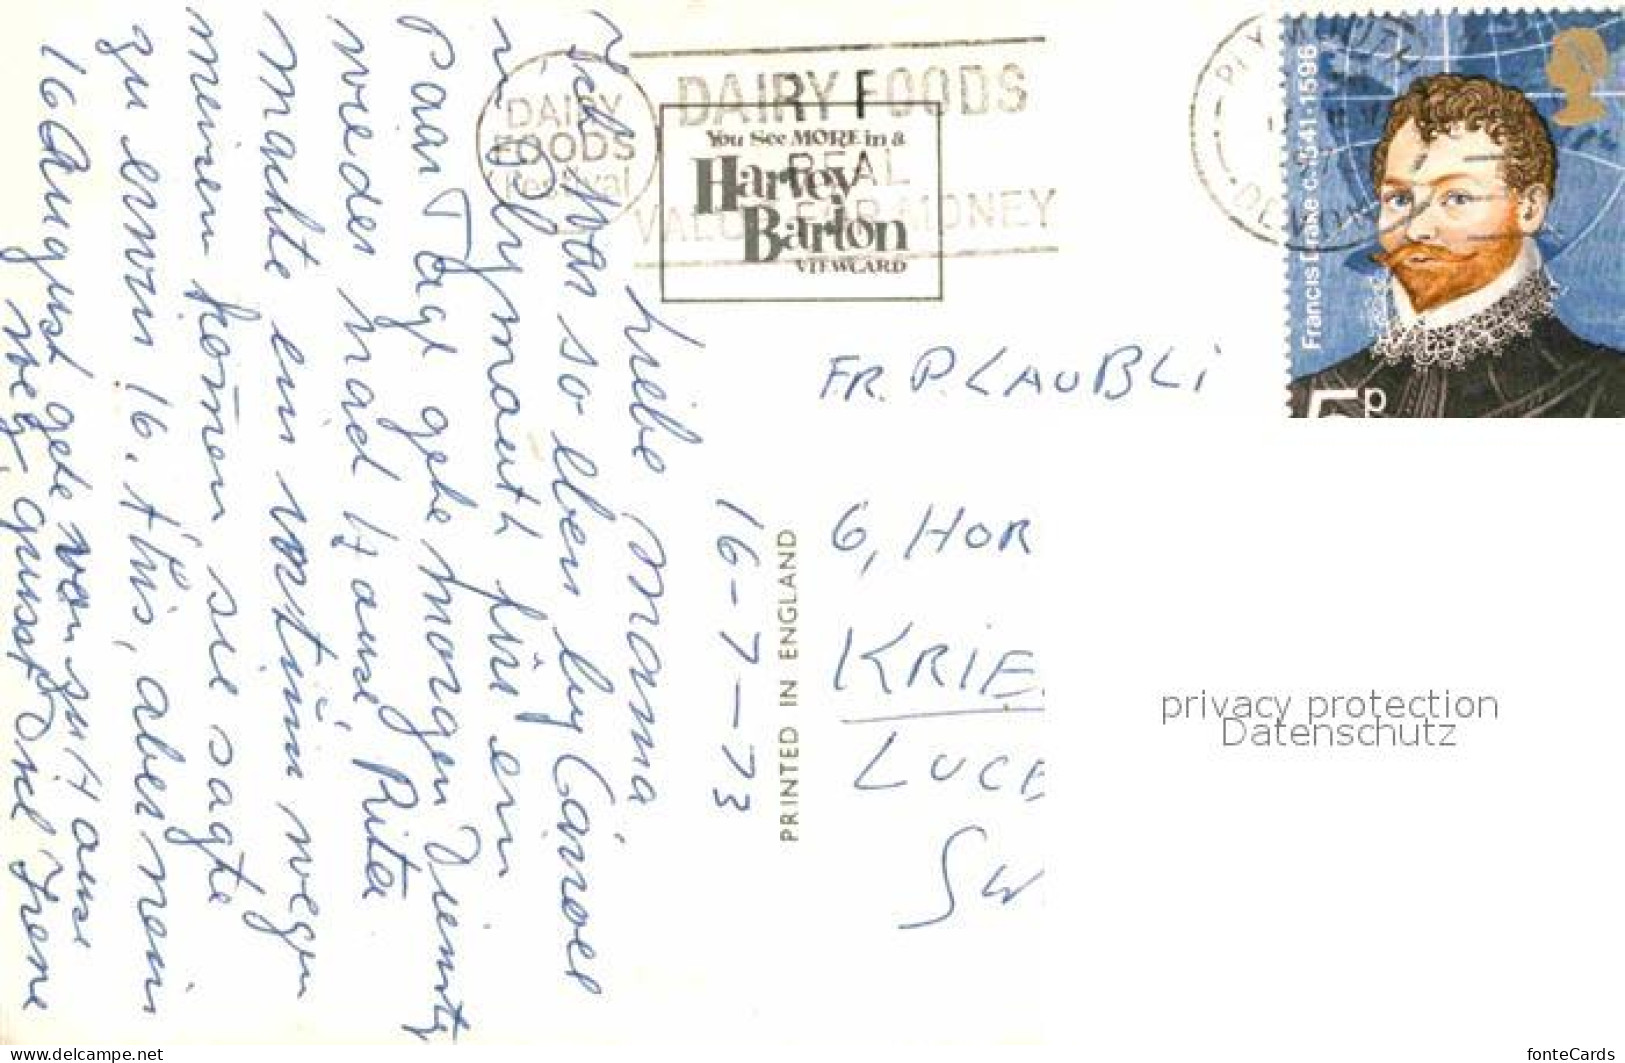 DAIRY
FOODS
Festival
DAIRY FOODS
REAL
VALUE FOR MONEY
You See MORE in a
Harvey
Barton
VIEWCARD
PLYMOUTH
DEVON
Francis Drake c.1541-1596
5p
Liebe Mama
16-7-73
Ich war so eben by
in Plymouth für ein
Paar Tage gehe morgen
wieder nach Hause, Rita
machte ein wegen
meinem komen sie sagte
zu erwin 16. this, aber nein
16 August gehe von zu Hause
weg, Irene
PRINTED IN ENGLAND
FR. P. LAUBLI
6, HOR
KRIE
LUCE
SW
privacy protection
Datenschutz
www.delcampe.net
fonteCards